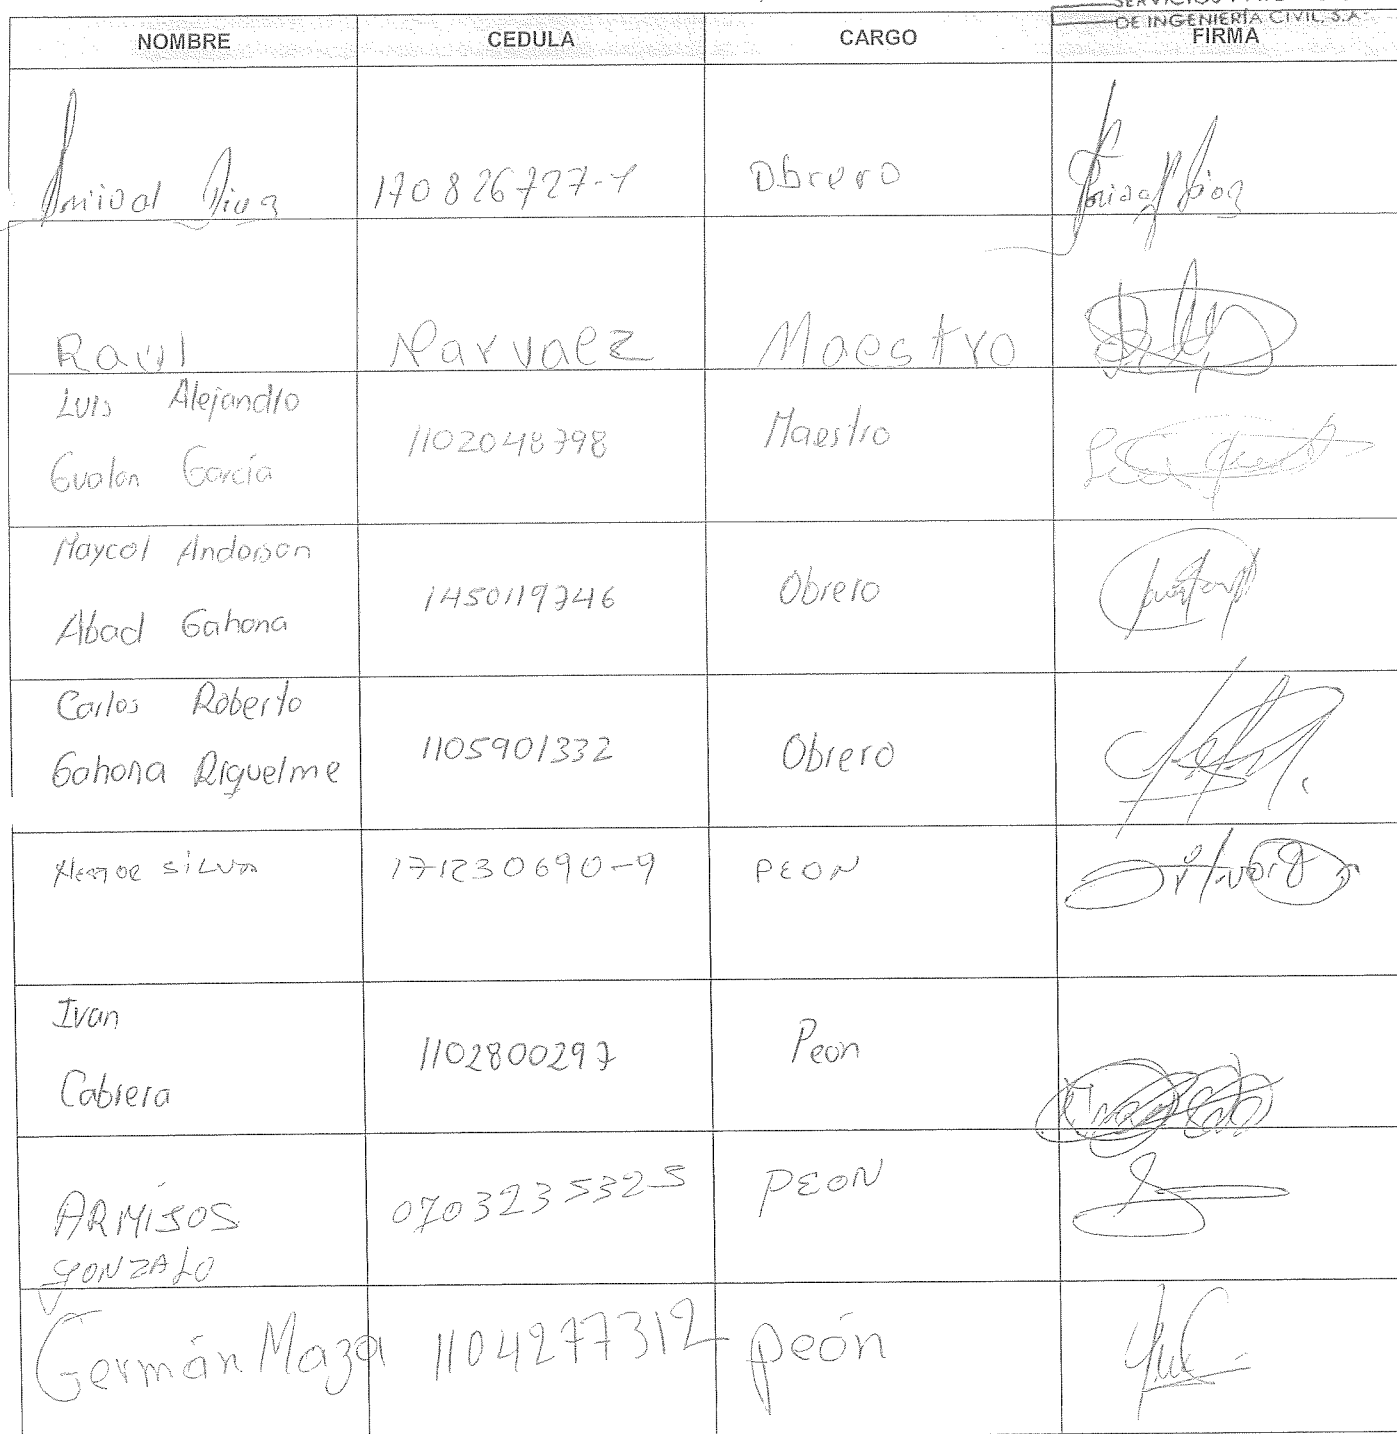 DE INGENIERÍA CIVIL, S.A.
NOMBRE CEDULA CARGO FIRMA
170826727-1 Obrero
Raúl Narvaez Maestro
Luis Alejandro
Gualan García
1102048798 Maestro
Maycol Anderson
Abad Gahona
1450119746 Obrero
Carlos Roberto
Gahona Riguelme
1105901332 Obrero
SILVA 171230690-9 PEON
Ivan
Cabrera
1102800297 Peon
ARMIJOS
GONZALO
0703235325 PEON
Germán Maza 1104277312 peón